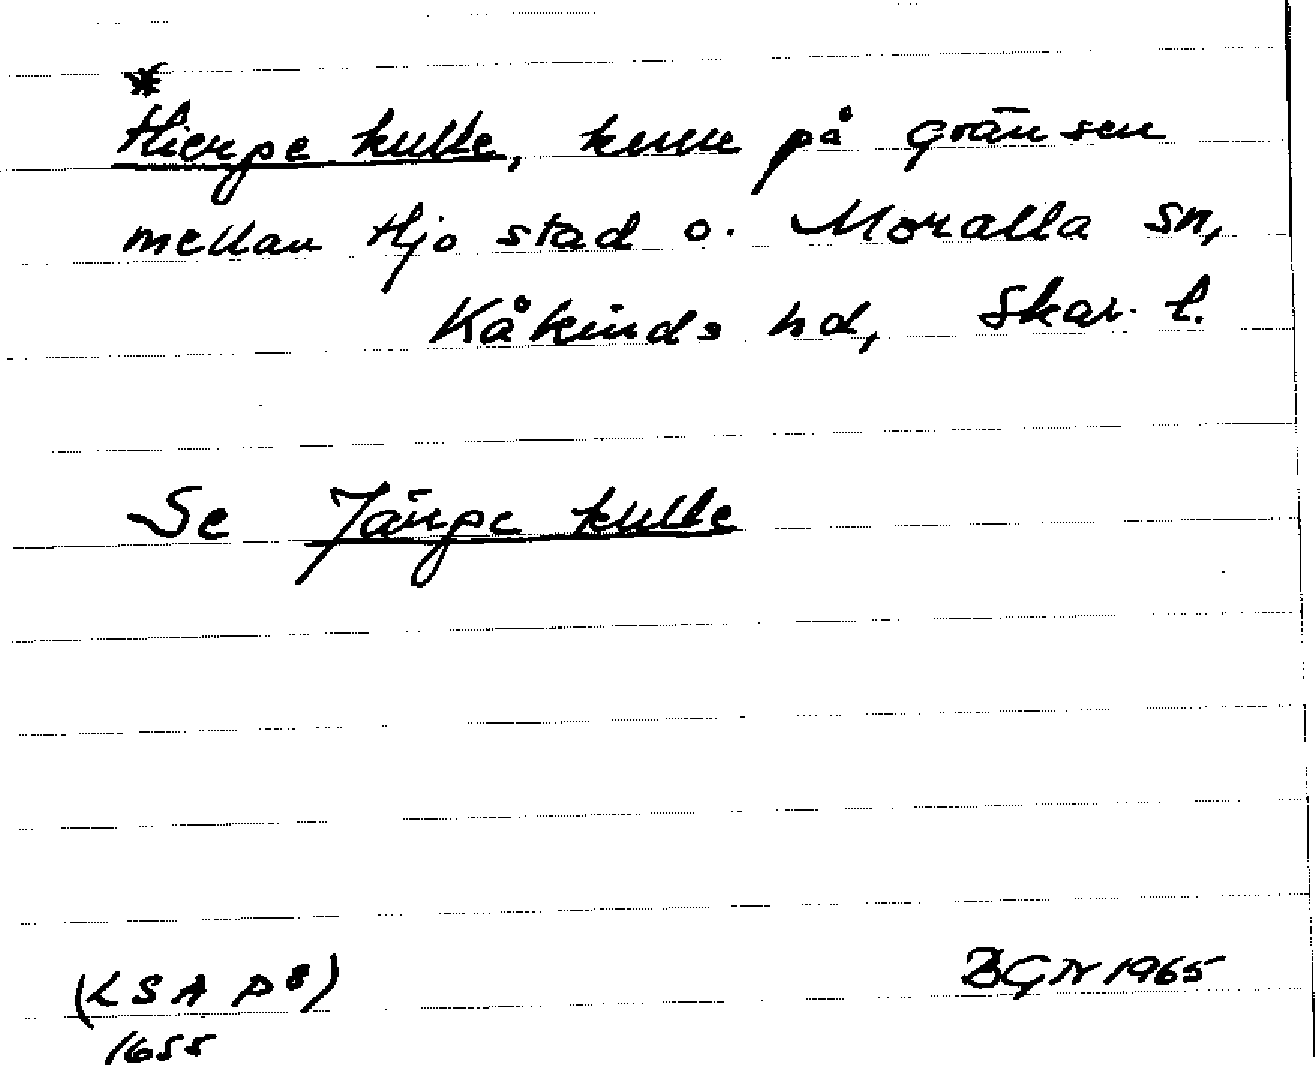 *
Hierpe kulle, kulle på gränsen
mellan Hjo stad o. Moralla sn,
Kåkinds hd, Skar. l.
Se Järpe kulle
(LSA P8) BGN 1965
1655